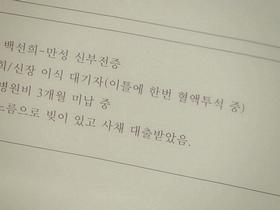 백선희-만성 신부전증
희/신장 이식 대기자(이틀에 한번 혈액투석 중)
병원비 3개월 미납 중
노름으로 빚이 있고 사채 대출받았음.